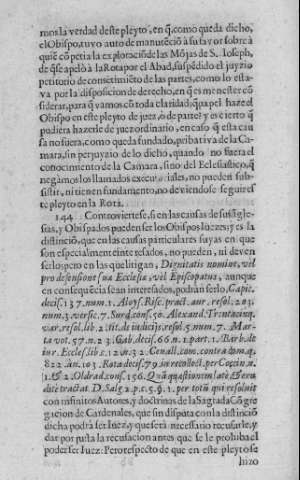 mos la verdad deste pleyto, en q̃, como queda dicho,
el Obispo, tuvo auto de manutẽciõ à su favor sobre à
quiẽ cõpetia la exploraciõ de las Mõjas de S. Ioseph,
de q̃ se apelò à la Rota por el Abad, suspẽdido el juyzio
petitorio de consetimiẽto de las partes, como lo esta-
va por la disposicion de derecho, en q̃ es menester cõ
siderar, para q̃ vamos cõ toda claridad, q̃ papel haze el
Obispo en este pleyto de juez, ò de parte? y es cierto q̃
pudiera hazerle de juez ordinario, en caso q̃ esta cau
sa no fuera, como queda fundado, pribativa de la Ca-
mara, sin perjuyzio de lo dicho, quando no fuera el
conocimiento de la Camara, sino del Eclesiastico, q̃
negamos los llamados executoriales, no pueden sub-
sistir, ni tienen fundamento, no deviendose seguir es
te pleyto en la Rota.
144 Controviertese, si en las causas de sus Igle-
sias, y Obispados pueden ser los Obispos Iuezes; y es la
distinciõ, que en las causas particulares suyas en que
son especialmente interesados, no pueden, ni deven
serlo; pero en las que litigan, Dignitatis nomine, vel
pro defensione suæ Ecclesiæ, vel Episcopatus, aunque
en consequẽcia sean interesados, podràn serlo, Capic.
decis. 137. num. 1. Aloys. Ricc. pract. aur. resol. 203.
num. 3. versic. 7. Surd. cons. 50. Alexand. Trentacinq.
var. resol. lib. 2. tit. de iudicijs. resol. 5. num. 7. Mar-
ta vot. 57. n. 23. Gab. decis. 66. n. 1. part. 1. Barb. de
iur. Eccles. lib. 1. 12. n. 32. Cevall. com. contra com. q.
822. in. 103. Rota decis. 79. in recollect. per Coccin. n.
1. & 2. Oldrad. cons. 156. Quã quæstionem latè, & eru
ditè tractat D. Salg. 2. p. c. 9. §. 1. per totũ qui resoluit
con infinitos Autores, y doctrinas de la Sagrada Cõ gre
gacion de Cardenales, que sin disputa con la distinciõ
dicha podrà ser Iuez, y que serà necessario recusarle, y
dar por justa la recusacion antes que se le prohiba el
poder ser Iuez: Pero respecto de que en este pleyto se
hizo